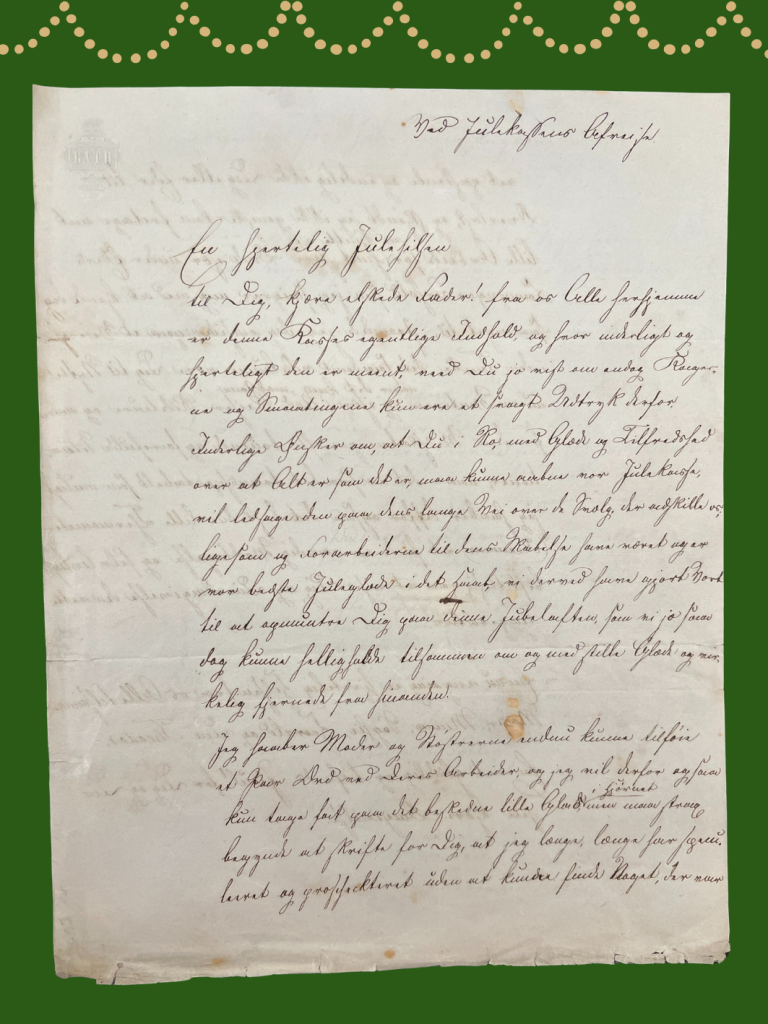 Ved Julekassens Afreise
En hjertelig Julehilsen
til Dig, kjære elskede Fader! fra os Alle herhjemme
er denne Kasses egentlige Indhold, og hvor inderligt og
hjerteligt den er meent, veed Du jo vist om endog Kager-
ne og Smaatingene kun ere et svagt Udtryk derfor.
Inderlige Ønsker om, at Du i Ro, med Glæde og Tilfredshed
over at Alt er som det er, maa kunne aabne vor Julekasse,
vil ledsage den paa dens lange Vei over de Svælg, der adskille os,
ligesom og Forarbeiderne til dens Skabelse have været og er
vor bedste Juleglæde i det Haab, vi derved have gjort Vort
til at opmuntre Dig paa denne Jubelaften, som vi jo saa
dog kunne helligholde tilsammen om og med stille Glæde og vir-
kelig fjernede fra hinanden.
Jeg haaber Moder og Søstrerne endnu kunne tilføie
et Par Ord ved Deres Arbeider, og jeg vil derfor ogsaa
kun tage fat paa det beskedne lille Glas i Hjørnet men maa strax
begynde at skrifte for Dig, at jeg længe, længe har speku-
leret og prosjekteret uden at kunde finde Noget, der var